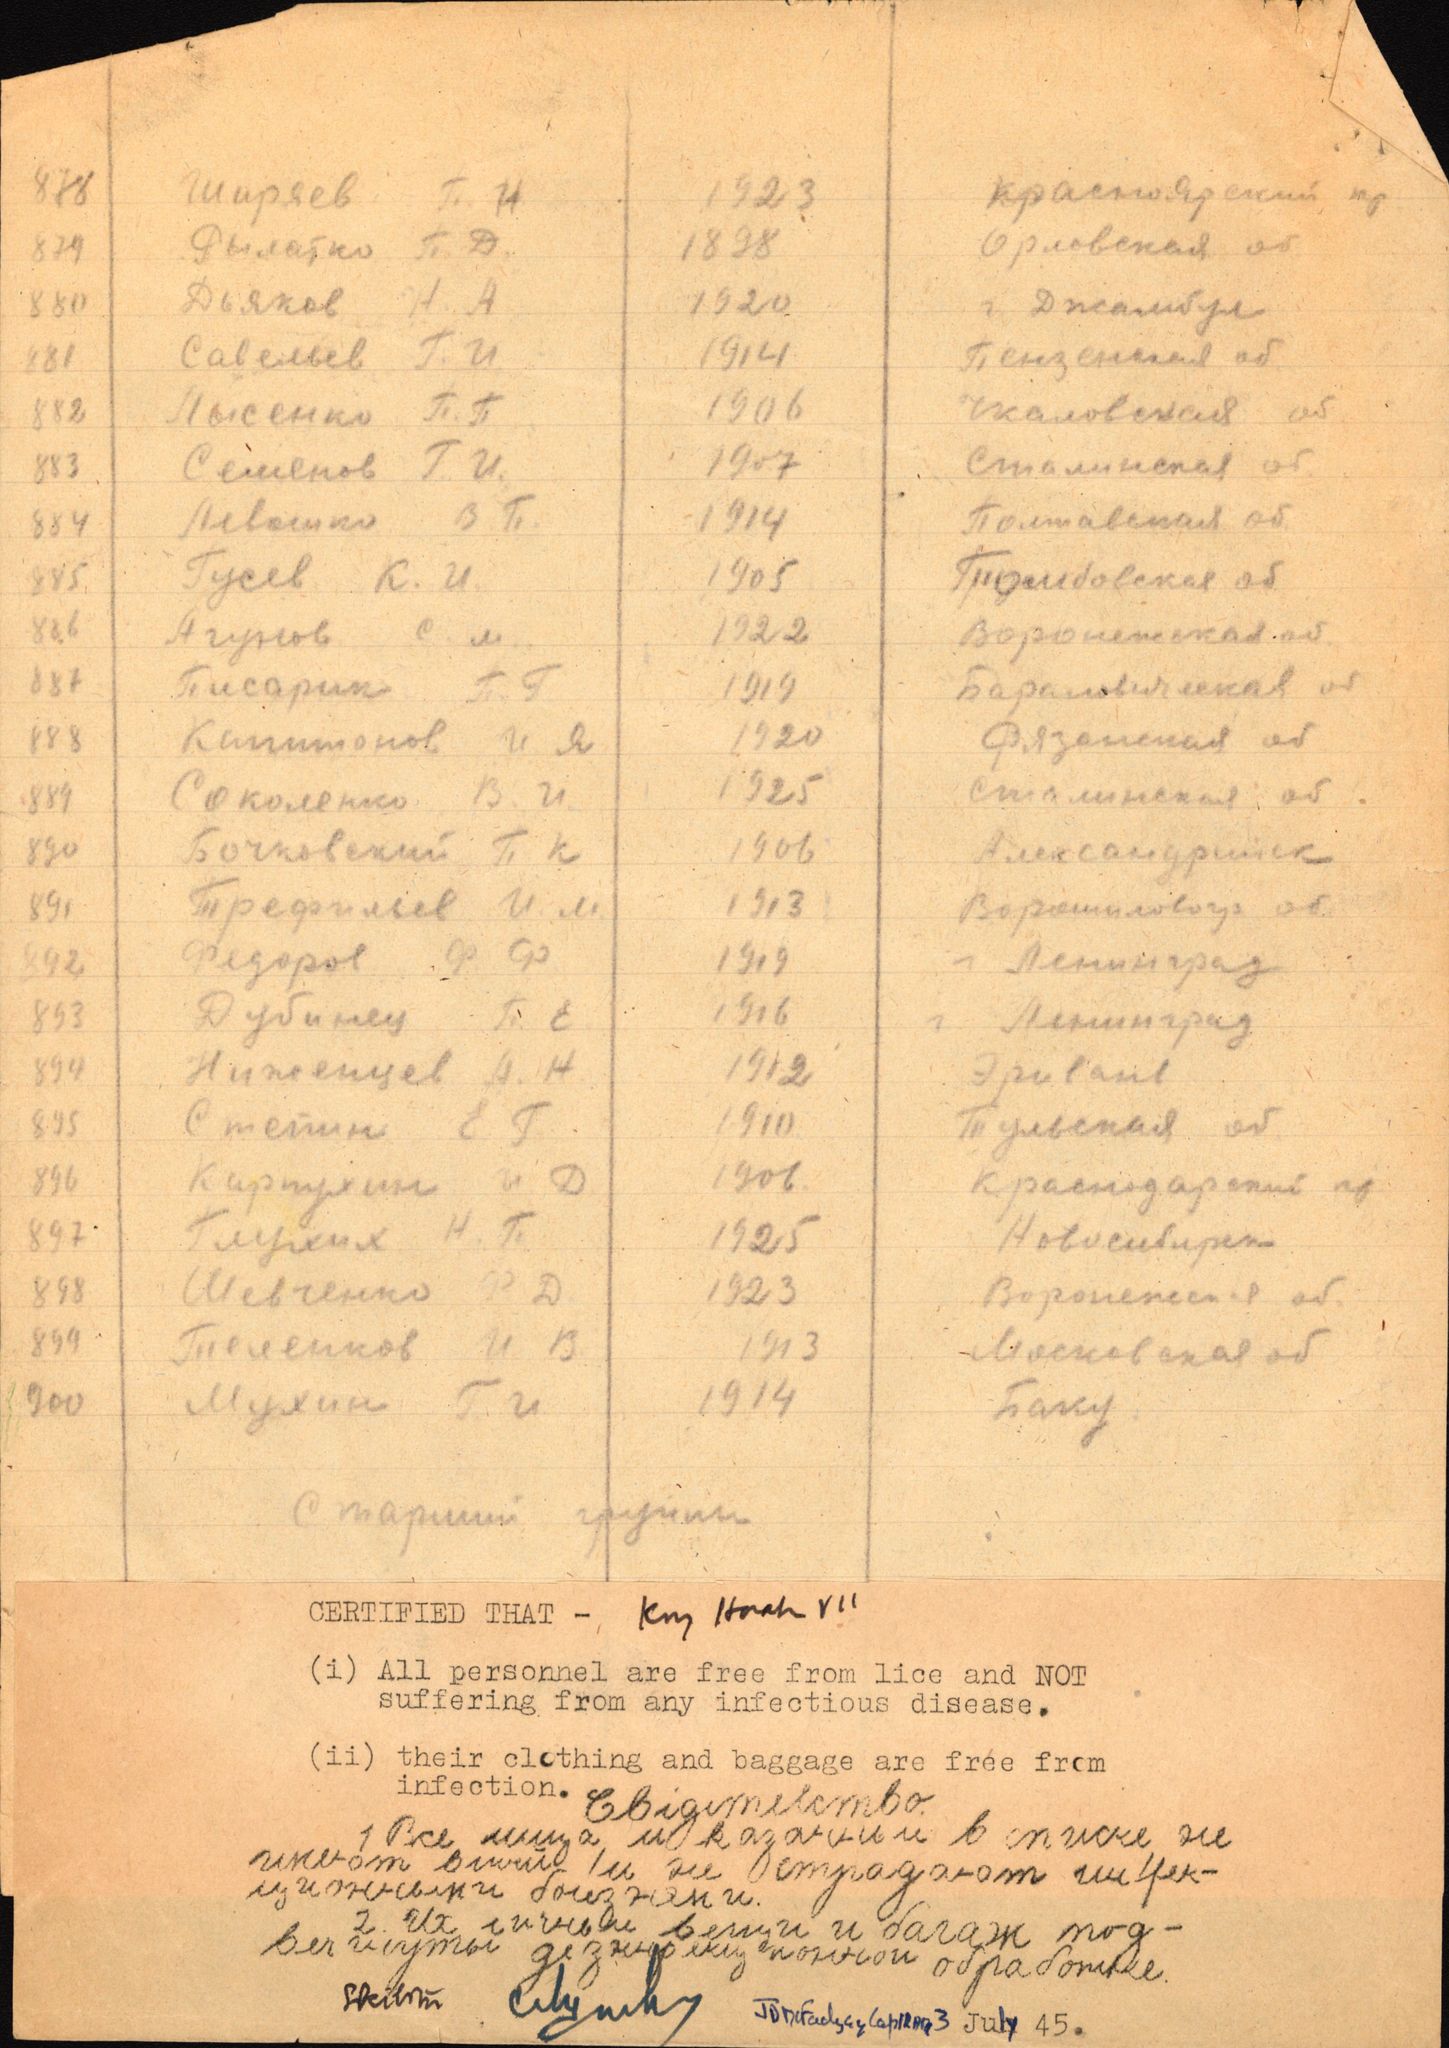 878 Ширяев П. Н 1923 Красноярский кр
879 Рылатко П Д. 1898 Орловская об
880 Дьяков Н. А 1920 г Джамбул
881 Савельев Г. И 1914 Пензенская об.
882 Лысенко П. П 1906 Чкаловская об
883 Семенов Г И. 1907 Сталинская об
884 Левошко В П. 1914 Полтавская об.
885 Гусев К. И. 1905 Тамбовская об
886 С. М. 1922 Воронежская об.
887 Писарик П. Г 1919 Барановическая об
888 Капитонов И Я 1920 Рязанская об
889 Соколенко В. И. 1925 Сталинская об.
890 Бочковский П К 1906 Александринск
891 Трефильев И. М. 1913 Ворошиловогр об.
892 Федоров Ф Ф 1919 г Ленинград
893 Дубинец П. Е 1916 г Ленинград
894 Ниженцев А. Н 1912 Эривань
895 Степин Е Г 1910 Тульская об
896 Карпухин И Д 1906. Краснодарский кр
897 Глухих Н. П 1925 Новосибирск
898 Шевченко Ф Д 1923 Воронежская об.
899 Теленков И В 1913 Московская об
900 Мухин Г. И 1914 Баку
Старший группы
CERTIFIED THAT -
(i) All personnel are free from lice and NOT
suffering from any infectious disease.
(ii) their clothing and baggage are free from
infection.
Свідителство.
1 Все лица указанные в списке не
имеют вшей и не страдают инфек-
ционными болезнями.
2. Их личные вещи и багаж под-
вергнуты дезинфекционной обработке.
3 July 45.